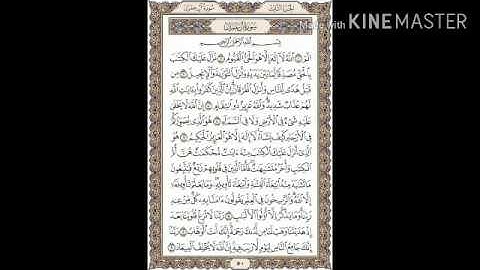 Made with KINEMASTER
الجزء الثالث سورة آل عمران
سورة آل عمران
بسم الله الرحمن الرحيم
الم ١ الله لا إله إلا هو الحي القيوم ٢ نزل عليك الكتب
بالحق مصدقا لما بين يديه وأنزل التورىة والإنجيل ٣ من
قبل هدى للناس وأنزل الفرقان إن الذين كفروا بـايت الله
لهم عذاب شديد والله عزيز ذو انتقام ٤ إن الله لا يخفى
عليه شيء في الأرض ولا في السماء ٥ هو الذي يصوركم
في الأرحام كيف يشاء لا إله إلا هو العزيز الحكيم ٦ هو
الذي أنزل عليك الكتب منه ءايت محكمت هن أم
الكتب وأخر متشبهت فأما الذين في قلوبهم زيغ فيتبعون
ما تشبه منه ابتغاء الفتنة وابتغاء تأويله وما يعلم تأويله
إلا الله والرسخون في العلم يقولون ءامنا به كل من عند
ربنا وما يذكر إلا أولوا الألبب ٧ ربنا لا تزغ قلوبنا بعد
إذ هديتنا وهب لنا من لدنك رحمة إنك أنت الوهاب ٨ ربنا
إنك جامع الناس ليوم لا ريب فيه إن الله لا يخلف الميعاد ٩
٥٠